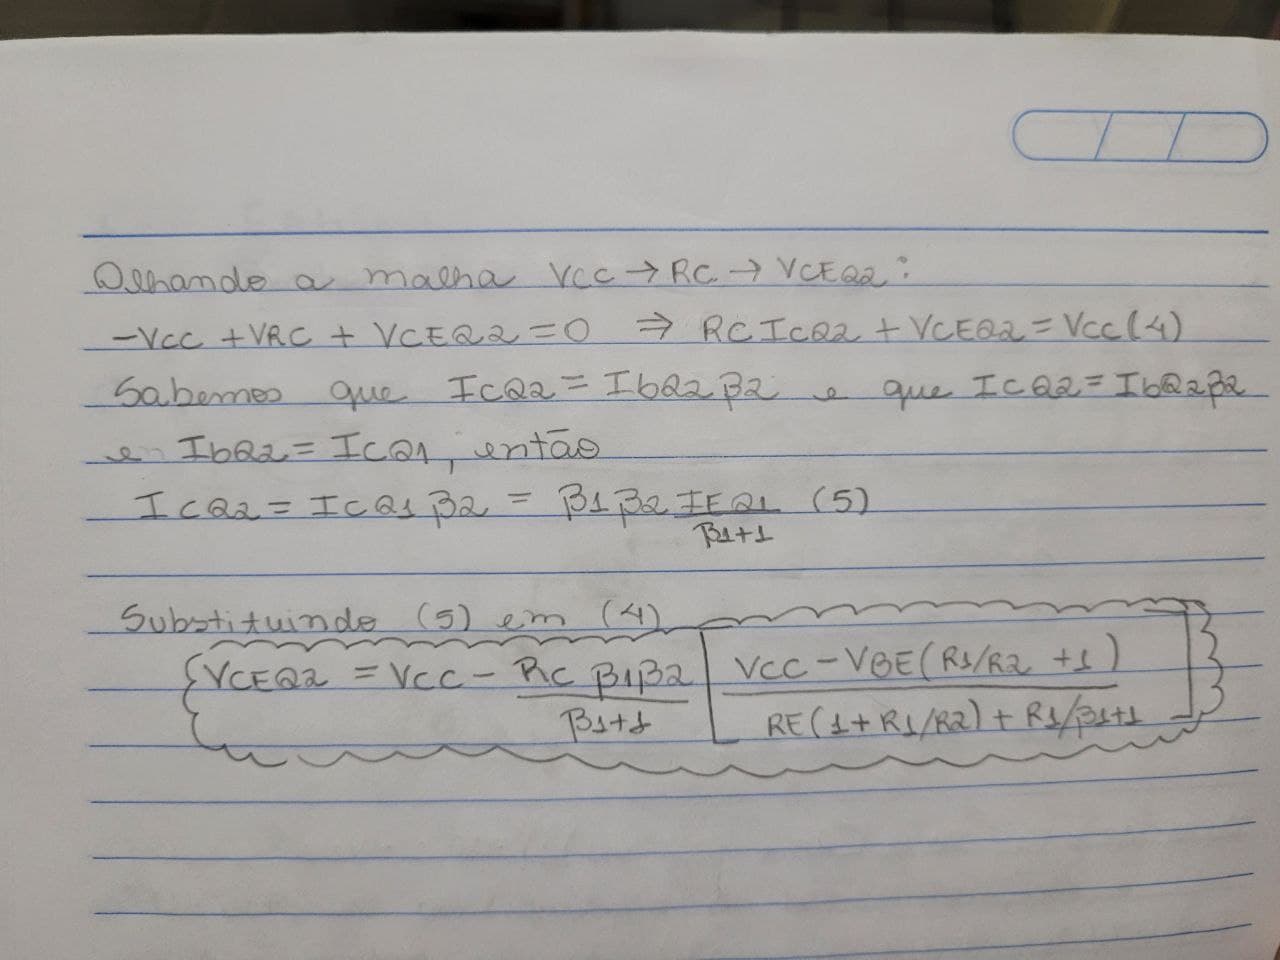 Olhando a malha VCC → RC → VCEQ2:
-VCC + VRC + VCEQ2 = 0 ⇒ RC ICQ2 + VCEQ2 = VCC (4)
Sabemos que ICQ2 = IbQ2 β2 e que ICQ2 = IbQ2 β2
e IbQ2 = ICQ1, então
ICQ2 = ICQ1 β2 = β1 β2 IEQ1 (5)
β1+1
Substituindo (5) em (4)
VCEQ2 = VCC - RC β1β2 [ VCC - VBE (R1/R2 + 1) ]
β1+1 RE (1 + R1/R2) + R1/β1+1